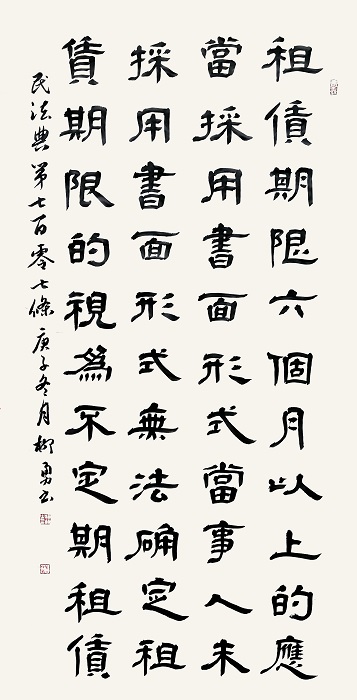 租賃期限六個月以上的應
當採用書面形式當事人未
採用書面形式無法确定租
賃期限的視為不定期租賃
民法典第七百零七條庚子冬月柳勇书